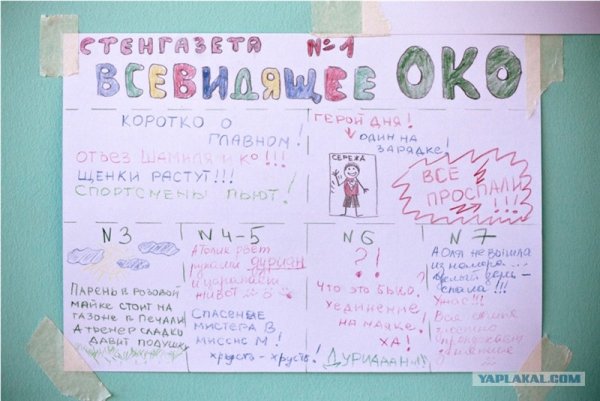 СТЕНГАЗЕТА №1
ВСЕВИДЯЩЕЕ ОКО
КОРОТКО О
ГЛАВНОМ!
ОТЪЕЗД ШАМИЛЯ И КО!!!
ЩЕНКИ РАСТУТ!!!
СПОРТСМЕНЫ ПЬЮТ!
ГЕРОЙ ДНЯ!
ОДИН НА
ЗАРЯДКЕ!
СЕРЕЖА
ВСЕ
ПРОСПАЛИ
!!!
N3
ПАРЕНЬ В РОЗОВОЙ
МАЙКЕ СТОИТ НА
ГАЗОНЕ В ПЕЧАЛИ
А ТРЕНЕР СЛАДКО
ДАВИТ ПОДУШКУ
N4-5
А ТОЛИК РВЕТ
РУКАМИ ДУРИАН
И ЦАРАПАЕТ
ЖИВОТ
СПАСЕНЫЕ
МИСТЕРА В
МИССИС М!
ХРУСТЬ-ХРУСТЬ!
N6
?!
ЧТО ЭТО БЫЛО,
УЕДИНЕНИЕ
НА МАЯКЕ,
ХА!
ДУРИАААН
N7
А ОЛЯ НЕ ВЫШЛА
ИЗ НОМЕРА...
ЦЕЛЫЙ ДЕНЬ
СПАЛА!!!
УЖАС!!!
ВСЕ
YAPLAKAL.COM